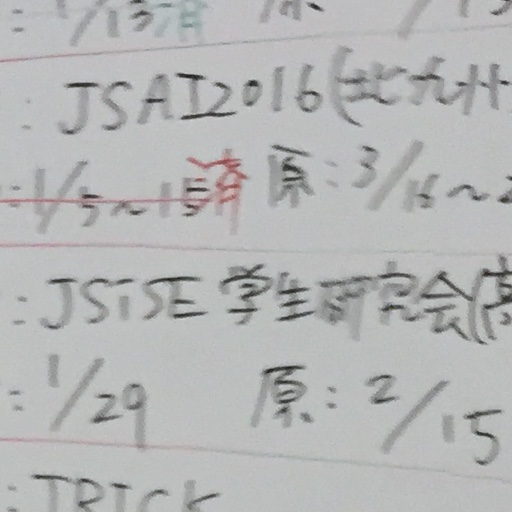 : 1/13済 原 /15
: JSAI2016(北九州
: 1/5~15済 原: 3/16~2
: JSiSE 学生研究会(
: 1/29 原: 2/15
: TRICK